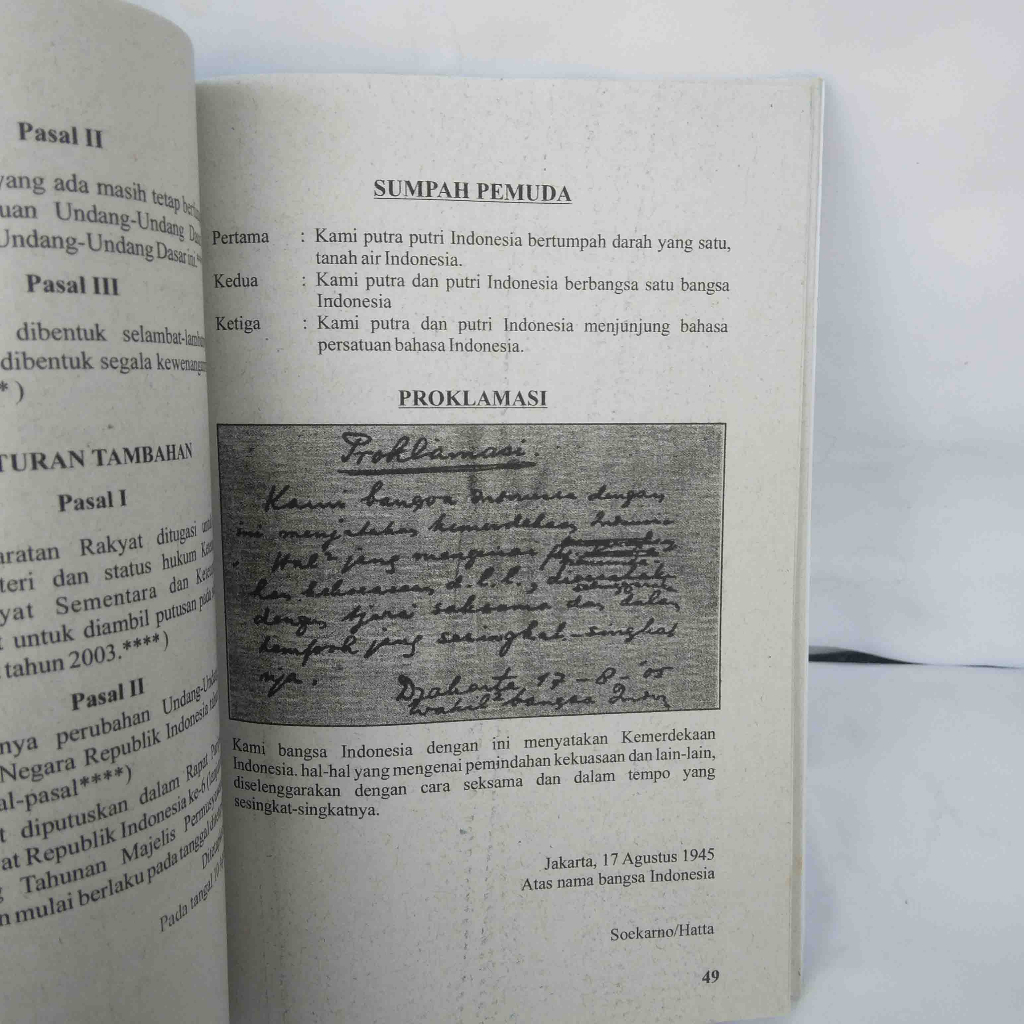 Pasal II
yang ada masih tetap
uan Undang-Undang
Undang-Undang Dasar ini.
Pasal III
dibentuk selambat-
dibentuk segala
* )
TURAN TAMBAHAN
Pasal I
aratan Rakyat ditugasi
teri dan status hukum
yat Sementara dan
t untuk diambil putusan pada
tahun 2003.****)
Pasal II
nya perubahan
Negara Republik Indonesia
al-pasal****)
t diputuskan dalam Rapat
at Republik Indonesia ke-6
g Tahunan Majelis
n mulai berlaku pada tanggal
Pada tanggal
SUMPAH PEMUDA
Pertama : Kami putra putri Indonesia bertumpah darah yang satu,
tanah air Indonesia.
Kedua : Kami putra dan putri Indonesia berbangsa satu bangsa
Indonesia
Ketiga : Kami putra dan putri Indonesia menjunjung bahasa
persatuan bahasa Indonesia.
PROKLAMASI
Proklamasi.
Kami bangsa Indonesia dengan
ini menjatakan kemerdekaan Indonesia
Hal² jang mengenai
kekoeasaan d.l.l.,
dengan tjara saksama dan dalam
tempoh jang sesingkat-singkat
nja.
Djakarta, 17 - 8 - '05
Wakil² bangsa Indon
Kami bangsa Indonesia dengan ini menyatakan Kemerdekaan
Indonesia. hal-hal yang mengenai pemindahan kekuasaan dan lain-lain,
diselenggarakan dengan cara seksama dan dalam tempo yang
sesingkat-singkatnya.
Jakarta, 17 Agustus 1945
Atas nama bangsa Indonesia
Soekarno/Hatta
49